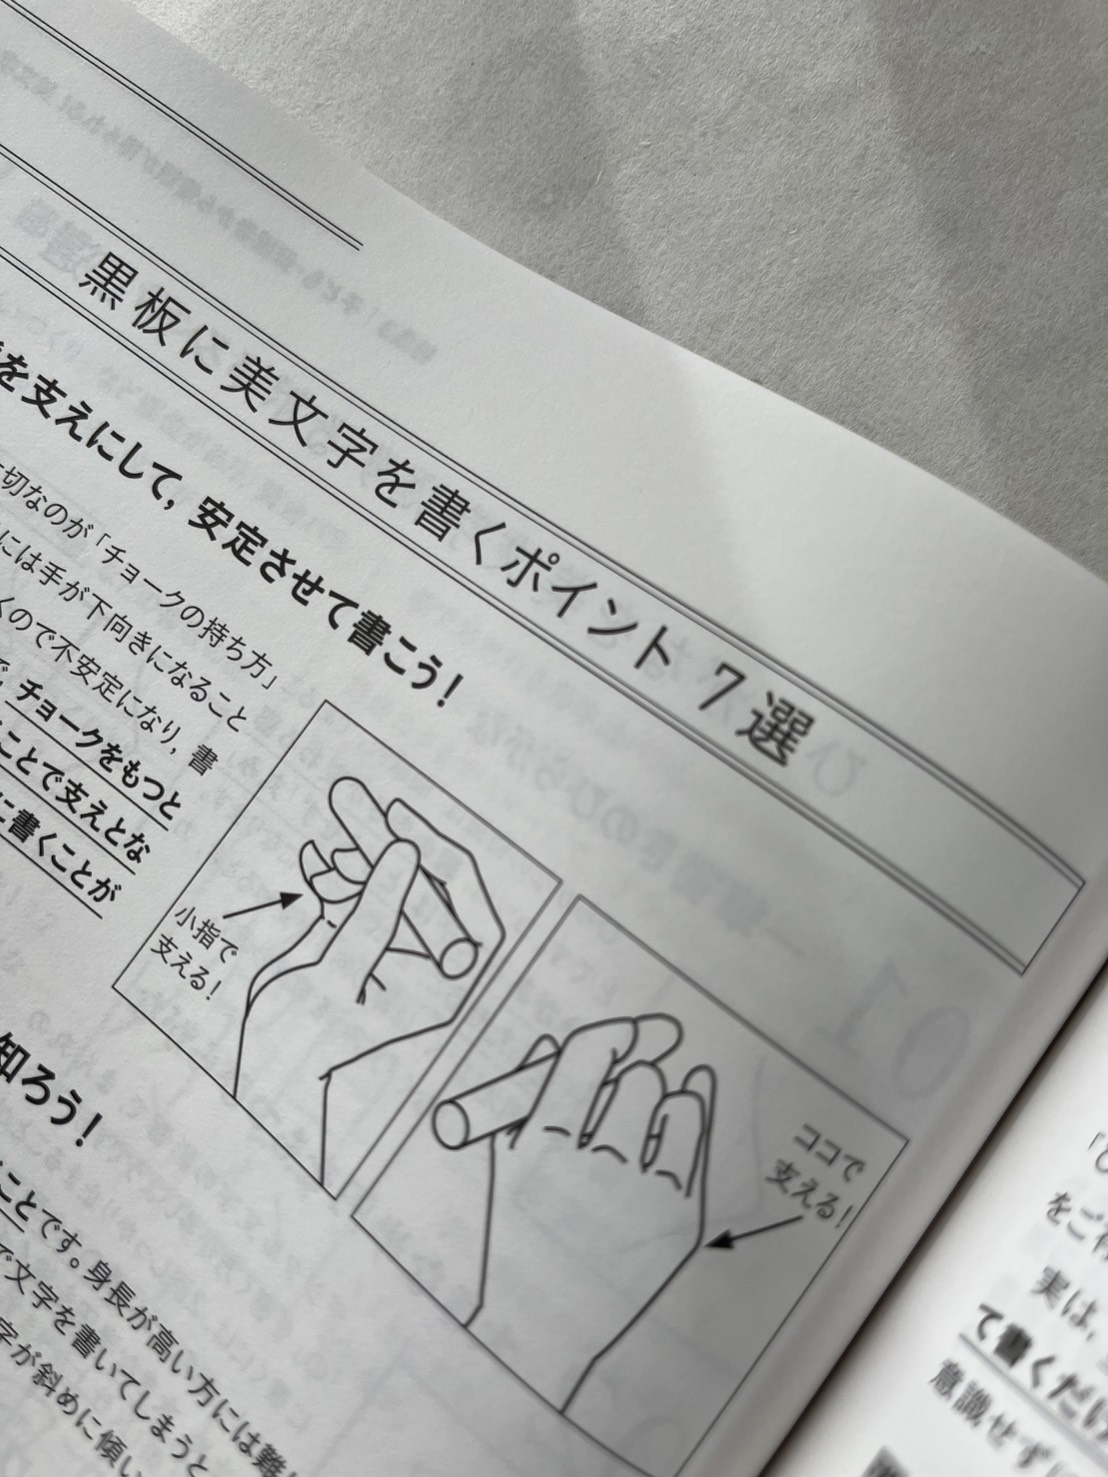 黒板に美文字を書くポイント 7選
を支えにして，安定させて書こう！
切なのが「チョークの持ち方」
には手が下向きになること
くので不安定になり，書
チョークをもつと
ことで支えとな
に書くことが
小指で
支える！
ココで
支える！
知ろう！
ことです。身長が高い方には難
で文字を書いてしまうと
字が斜めに傾い
をご
実は，
て書くだけ
意識せず